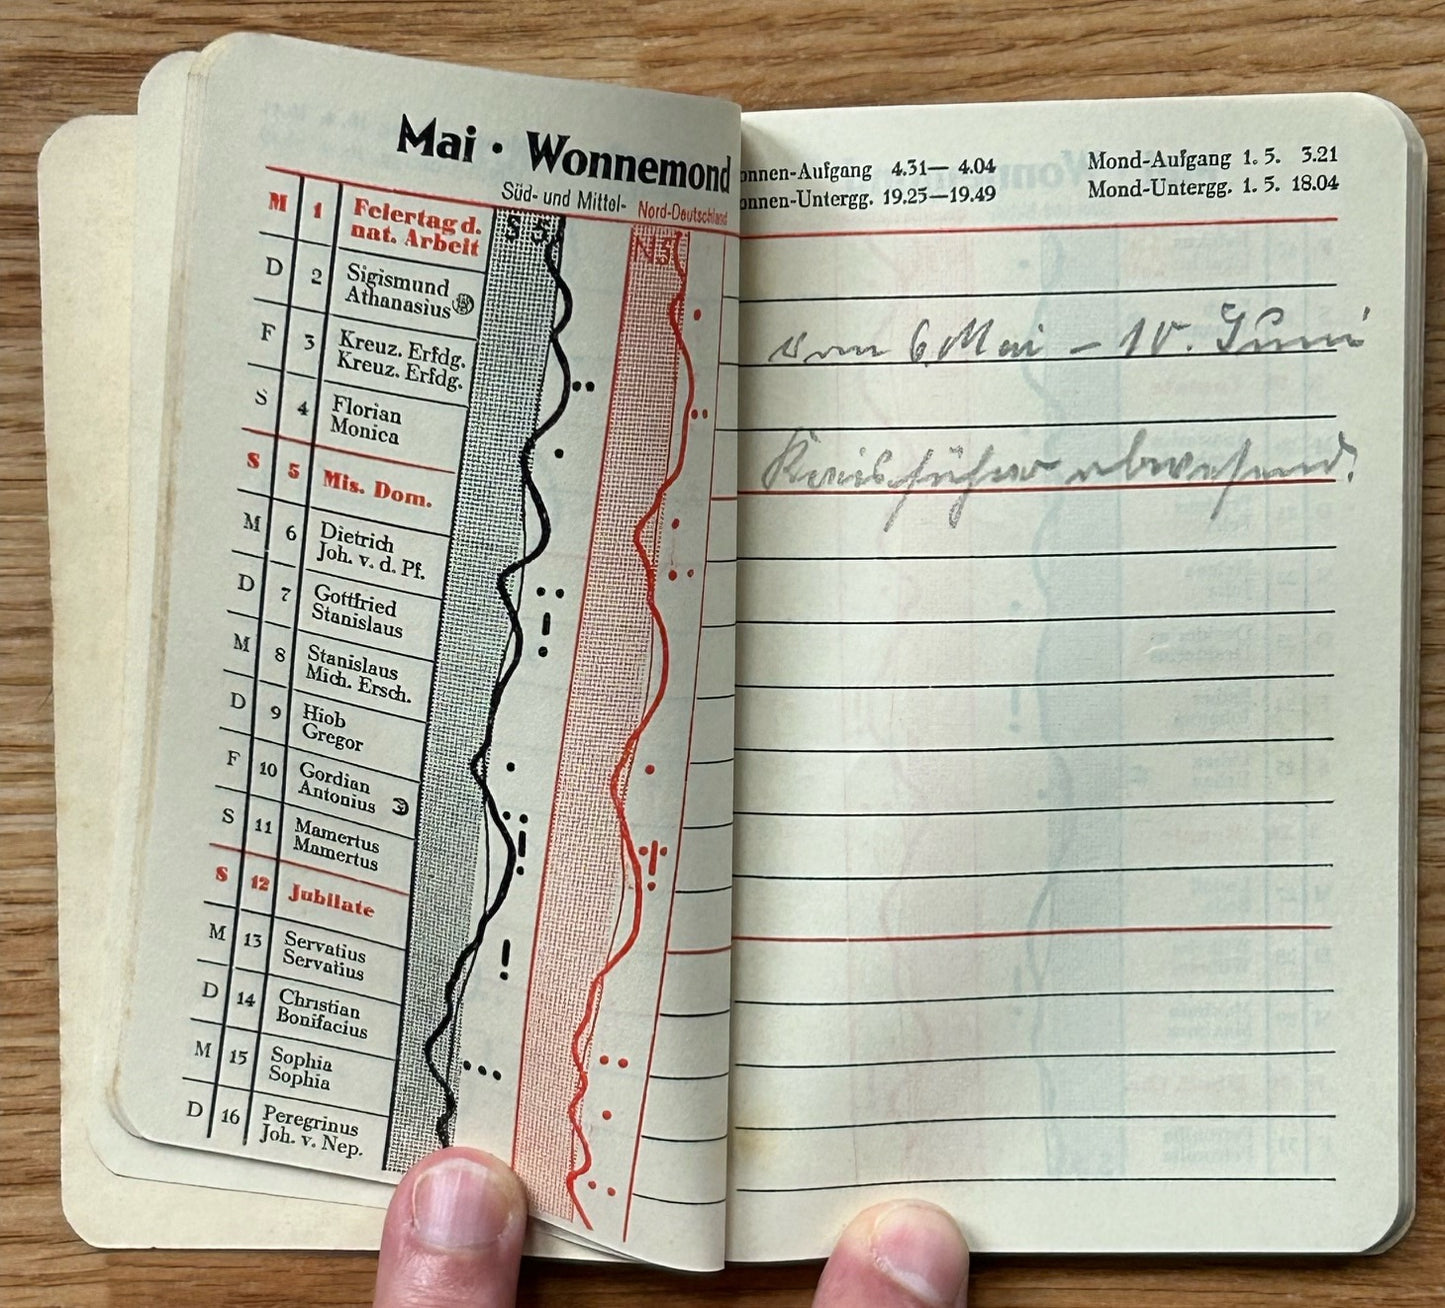 Mai · Wonnemond
Süd- und Mittel- Nord-Deutschland
S 5 N 5
M 1 Feiertag d. nat. Arbeit
D 2 Sigismund Athanasius
F 3 Kreuz. Erfdg. Kreuz. Erfdg.
S 4 Florian Monica
S 5 Mis. Dom.
M 6 Dietrich Joh. v. d. Pf.
D 7 Gottfried Stanislaus
M 8 Stanislaus Mich. Ersch.
D 9 Hiob Gregor
F 10 Gordian Antonius
S 11 Mamertus Mamertus
S 12 Jubilate
M 13 Servatius Servatius
D 14 Christian Bonifacius
M 15 Sophia Sophia
D 16 Peregrinus Joh. v. Nep.
onnen-Aufgang 4.31— 4.04 Mond-Aufgang 1. 5. 3.21
onnen-Untergg. 19.25—19.49 Mond-Untergg. 1. 5. 18.04
vom 6 Mai – 10. Juni
Kreisführer abwesend.